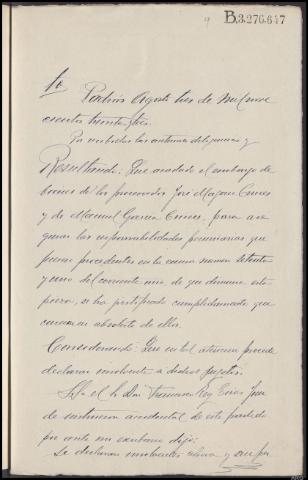 9 B.3.276.647
Padrón Agosto tres de mil nove
cientos treinta y tres.
Por recibidas las anteriores diligencias y
Resultando: Que acordado el embargo de
bienes de los procesados José Mazan Cures
y de Manuel García Cures, para ase
gurar las responsabilidades pecuniarias que
fueren procedentes en la causa número setenta
y uno del corriente año de que dimana esta
pieza, se ha justificado cumplidamente que
carecen en absoluto de ellos.
Considerando: Que en tal atención procede
declarar insolventes a dichos sujetos.
S.Sª el Sr. Don Francisco Rey Eiras Juez
de instrucción accidental de este partido
por ante mi escribano dijo:
Se declaran insolventes ahora y sin per